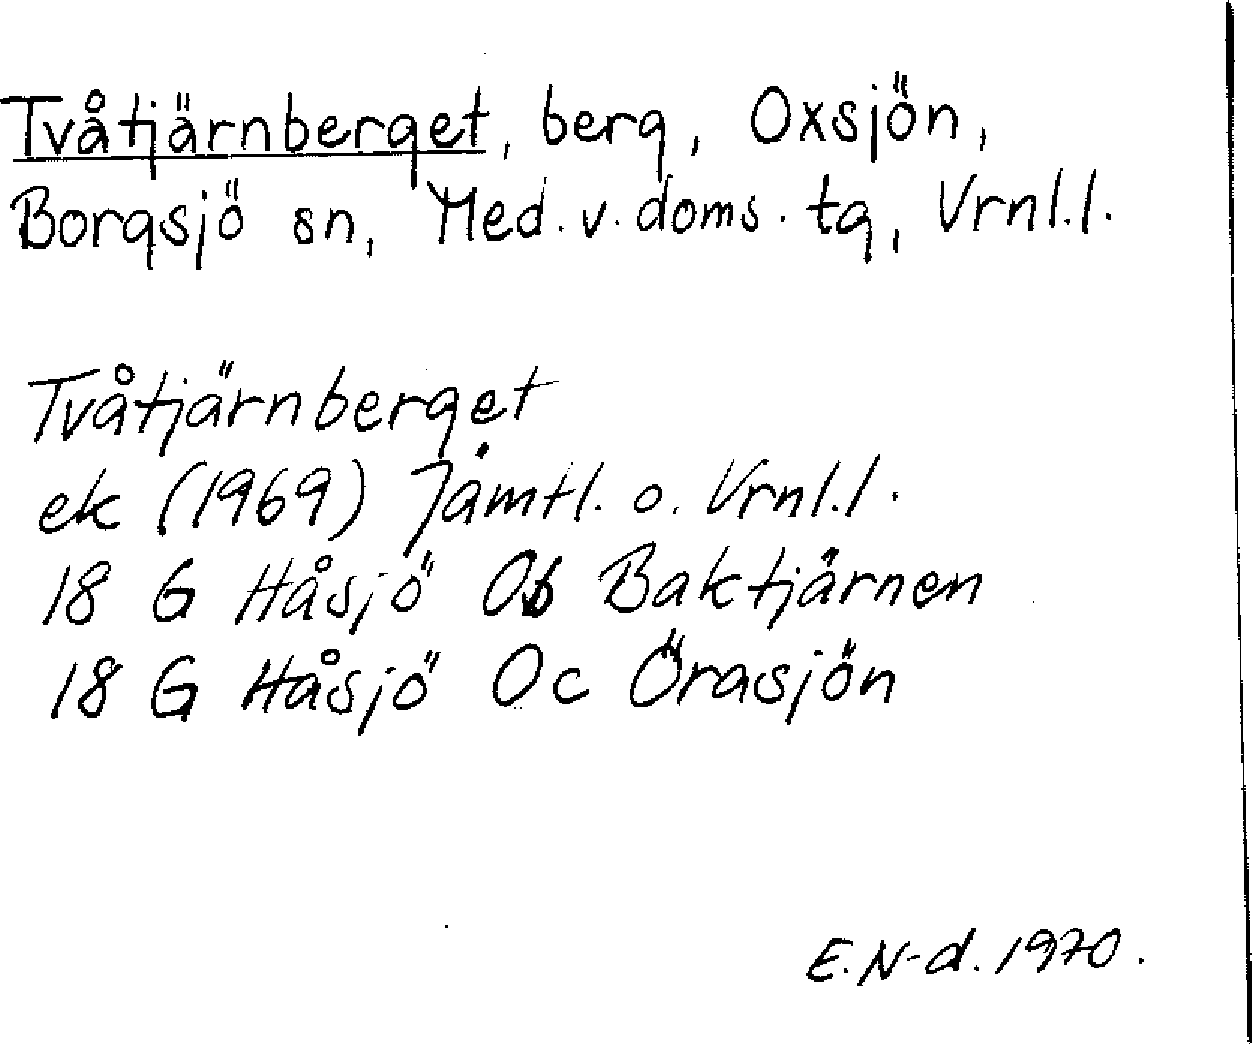 Tvåtjärnberget, berg, Oxsjön,
Borgsjö sn, Med. v. doms. tg, Vrnl.l.
Tvåtjärnberget
ek (1969) Jämtl. o. Vrnl.l.
18 G Håsjö Ob Baktjärnen
18 G Håsjö Oc Örasjön
E.N-d. 1970.